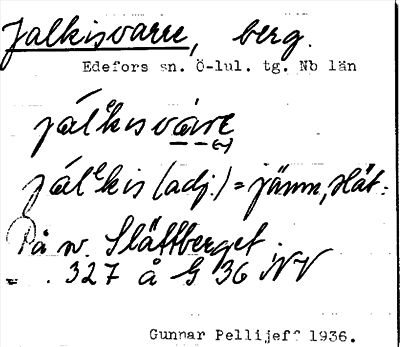 Jalkisvarre, berg.
Edefors sn. Ö-lul. tg. Nb län
jálᵉkisvárᵉ
jálᵉkis (adj.) = jämn, slät.
På sv. Slättberget
= . 327 å G 36 NV
Gunnar Pellijeff 1936.